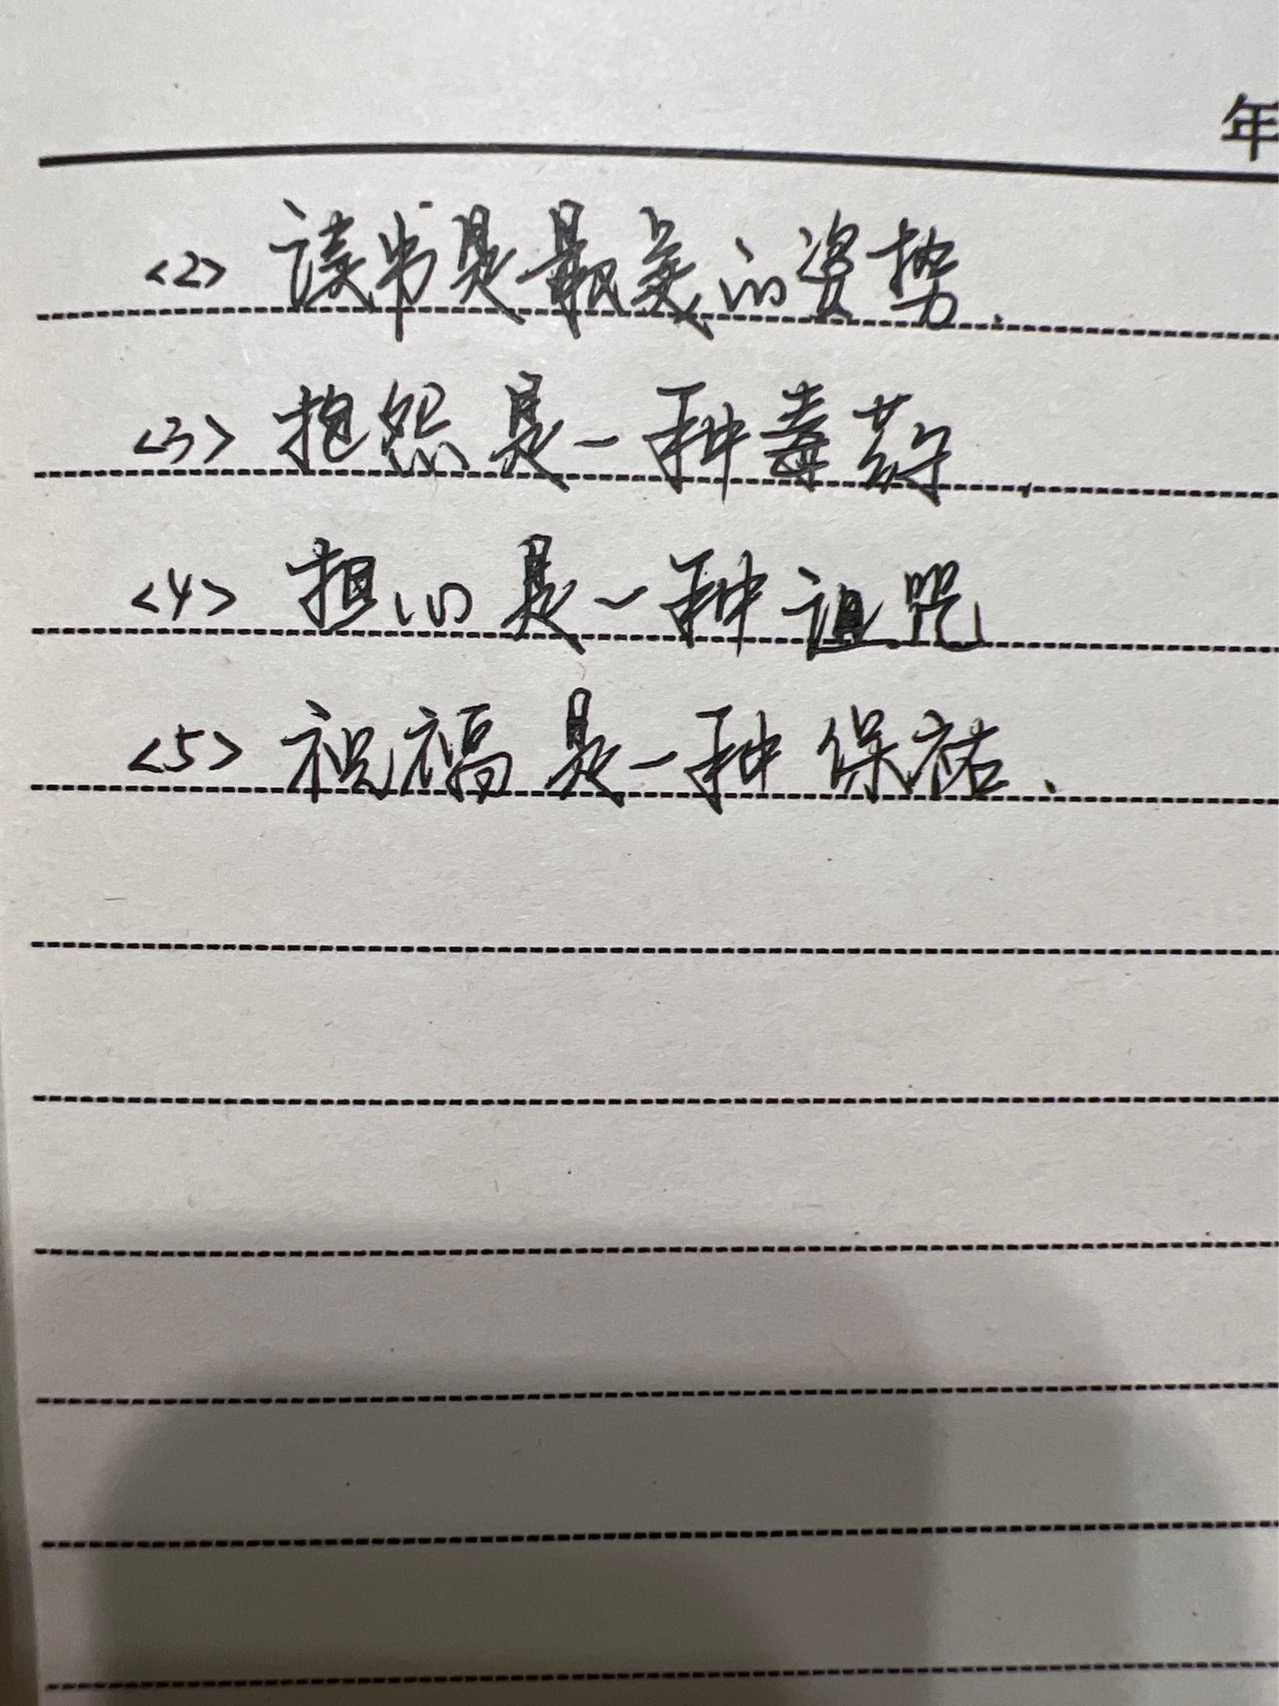 年
<2> 读书是最美的姿势.
<3> 抱怨是一种毒药.
<4> 担心是一种诅咒
<5> 祝福是一种保祐.